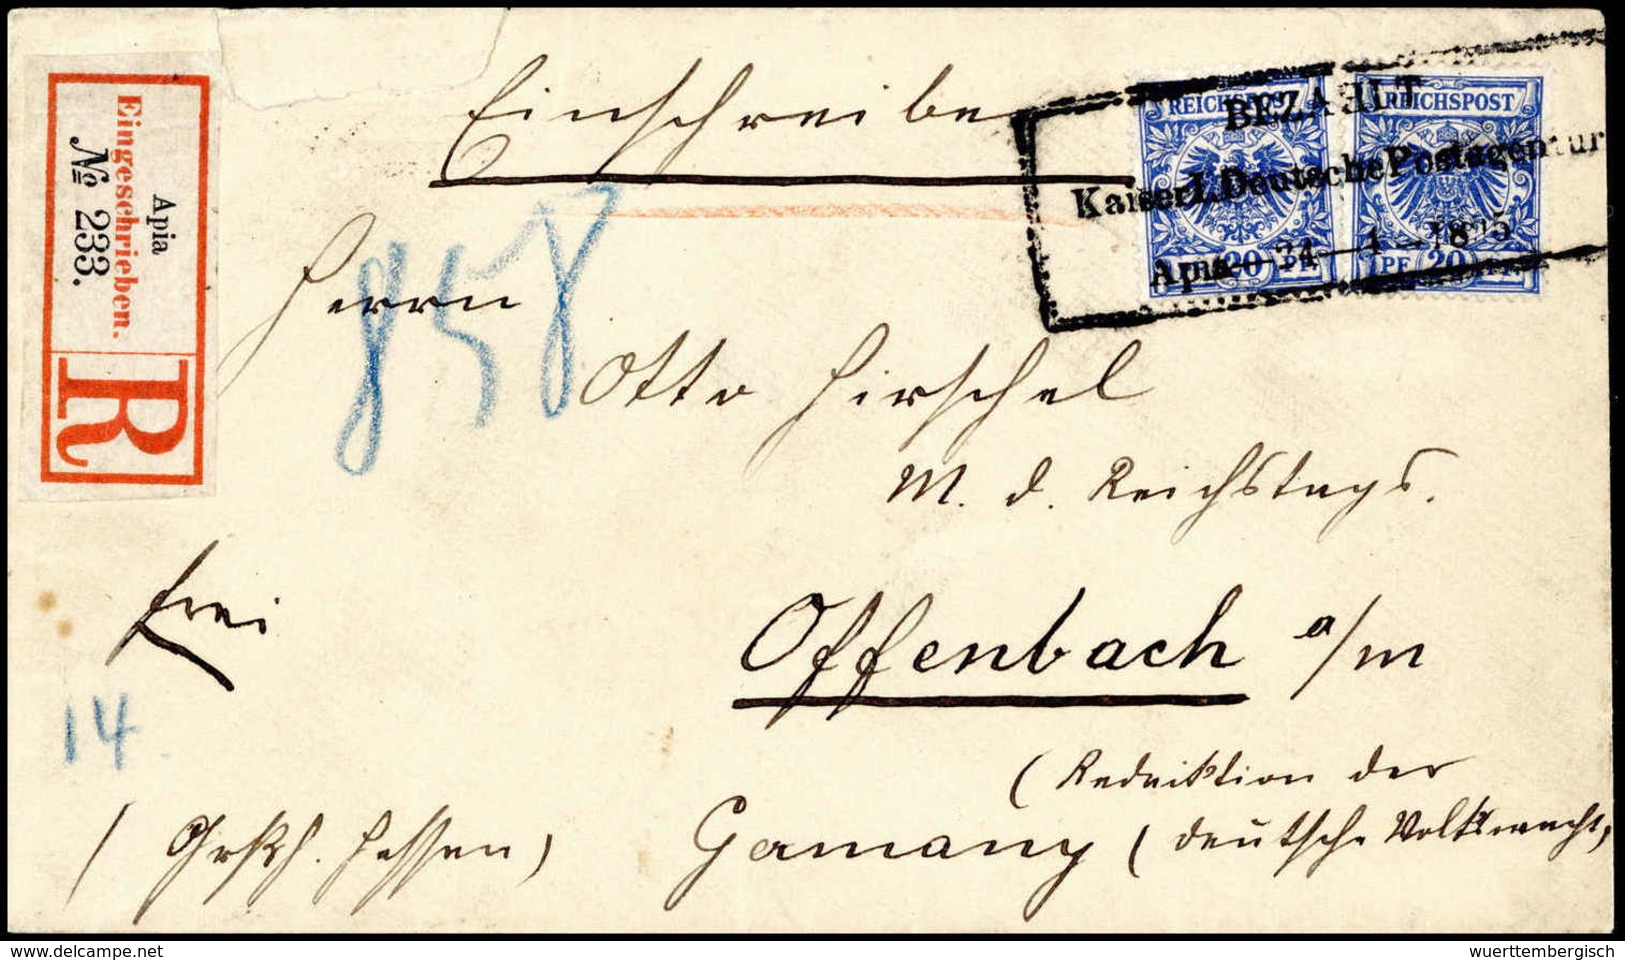 Einschreiben
Apia
Eingeschrieben.
No 233.
R
REICHSPOST
REICHSPOST
BEZAHLT
Kaiserl. Deutsche Postagentur
Apia 24—4—1895
PF 20 PF
PF 20 PF
858
Herrn
Otto Hirschel
M. d. Reichstags.
frei
Offenbach a/m
14
(Redaktion der
(Grßh. Hessen)
Germany (deutsche Volkswacht,
delcampe.net
wuerttembergisch